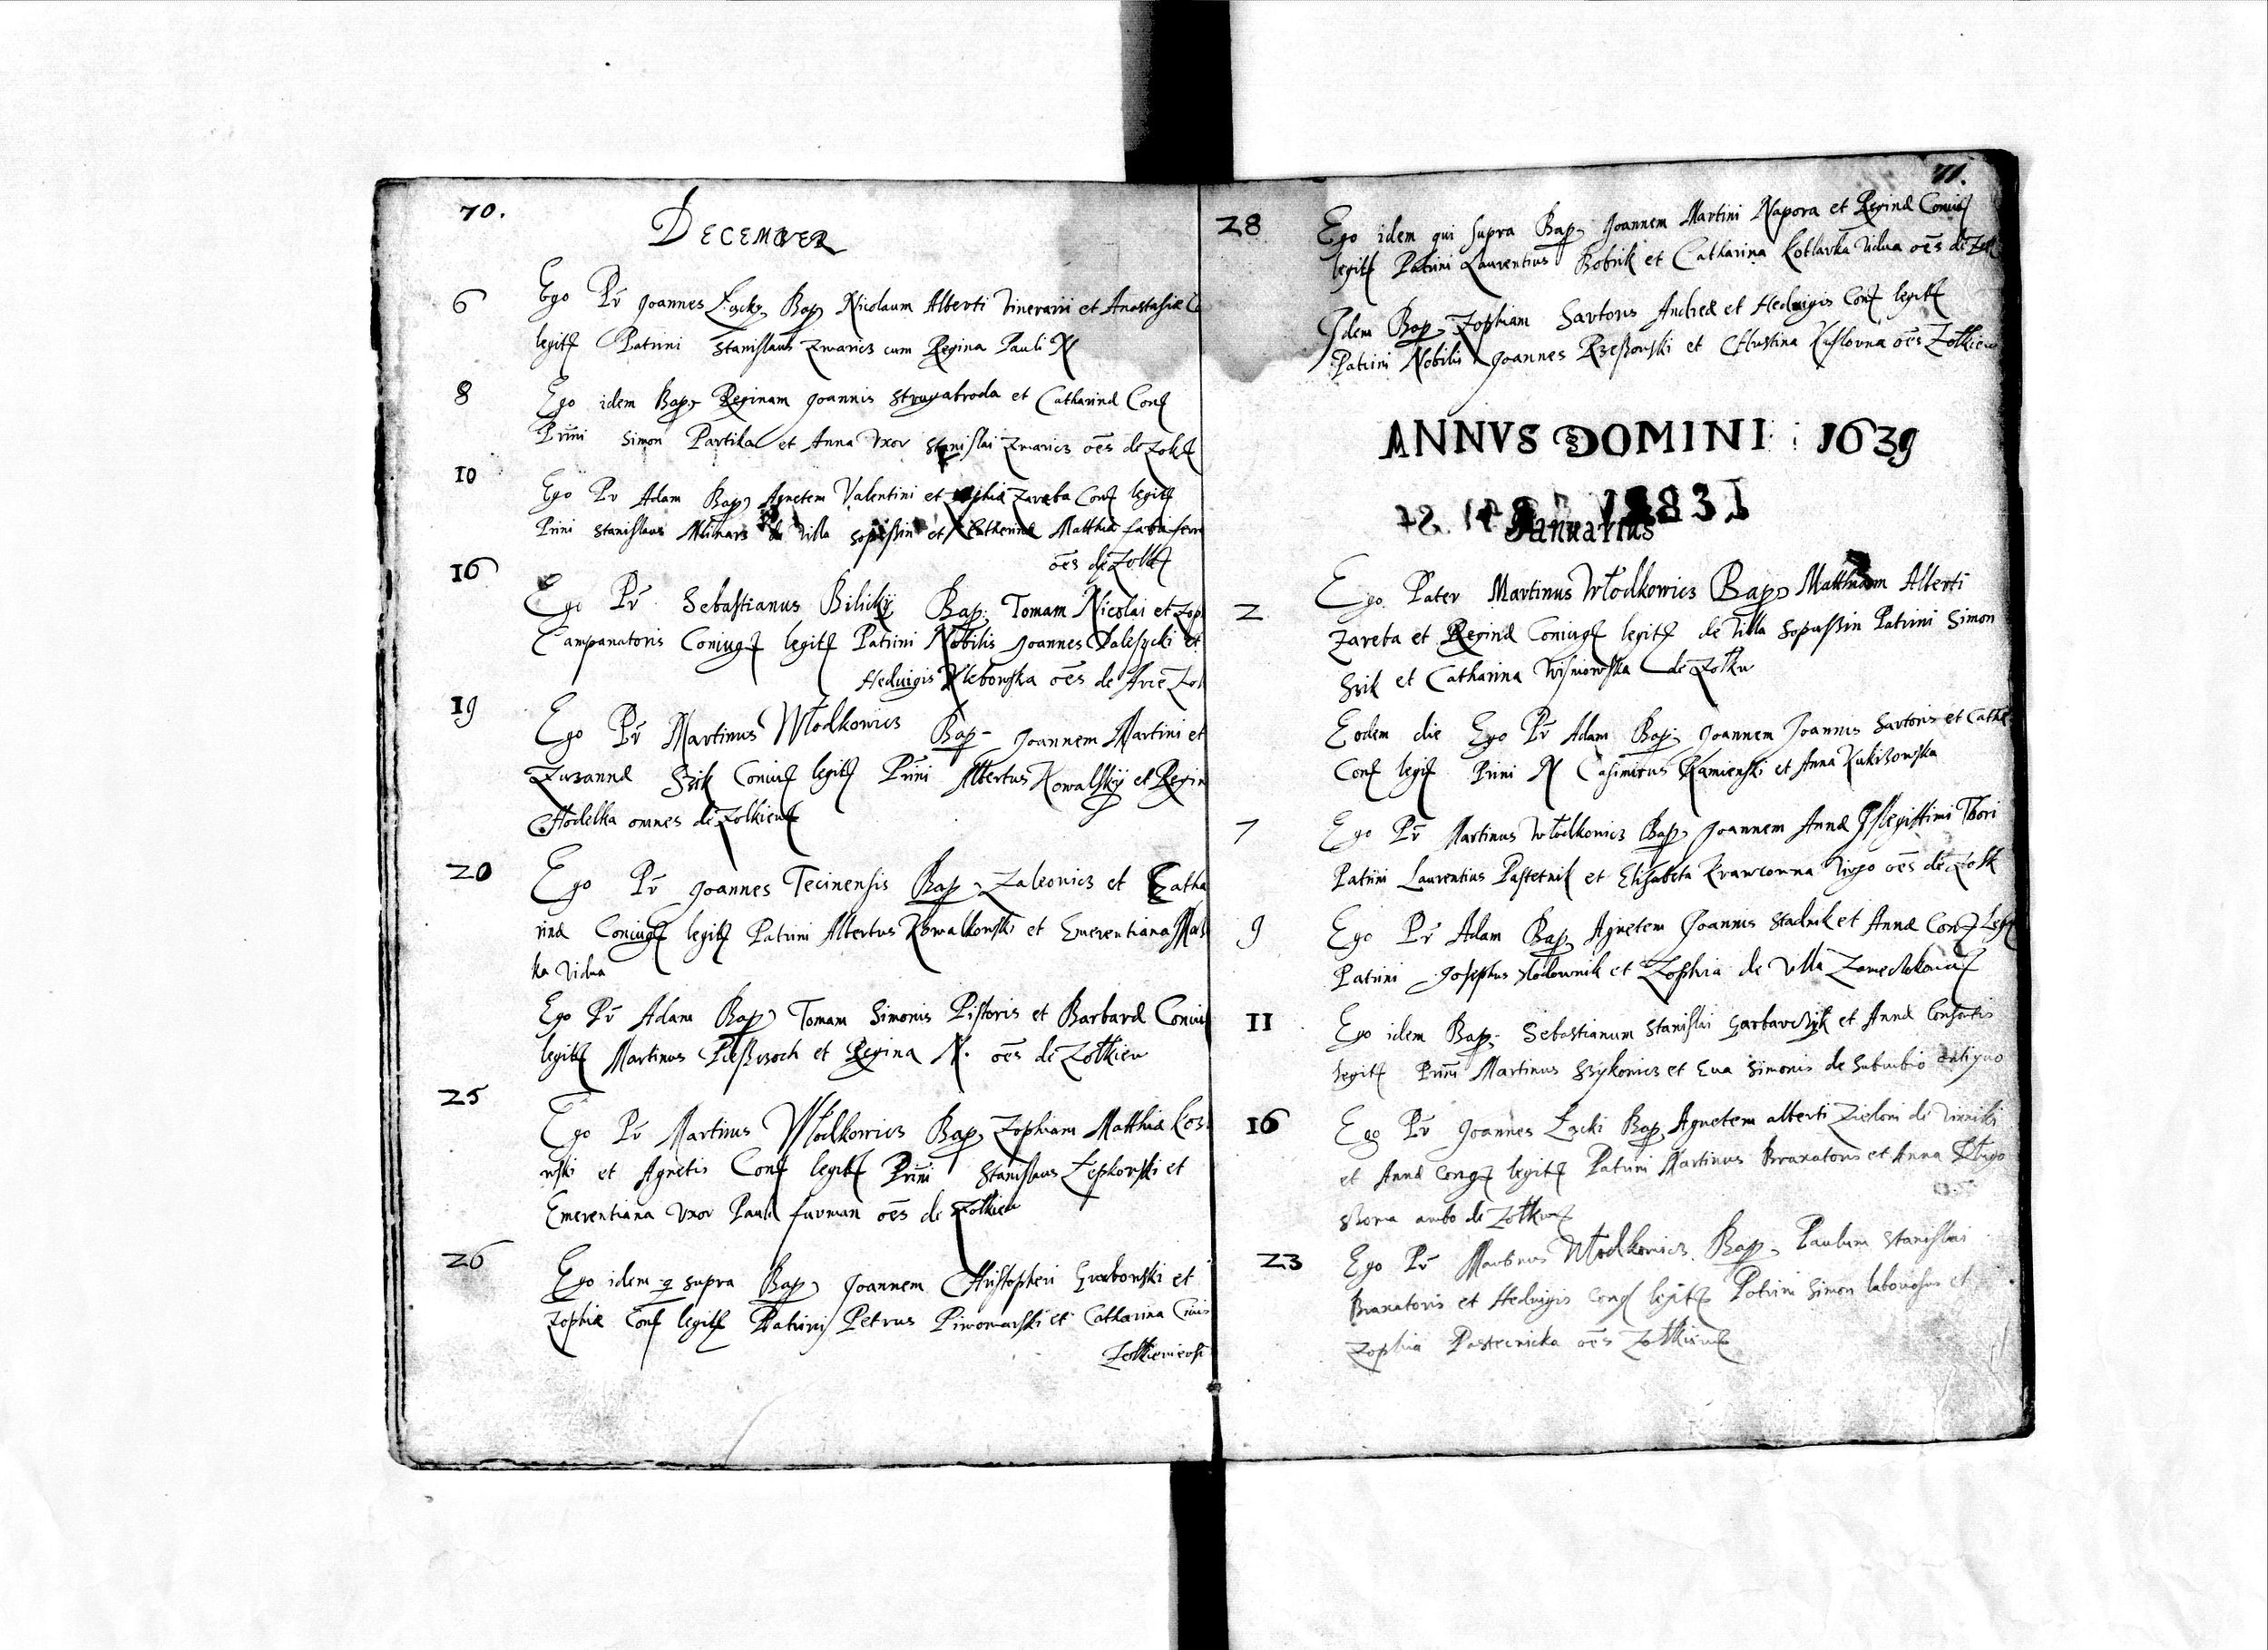 70.
DECEMBER
6 Ego Pr Joannes Łącky Bap Nicolaum Alberti Vinerarii et Anastasiæ Co
legit Patrini Stanislaus Zwaricz cum Regina Pauli N
8 Ego idem Bap Reginam Joannis Strugabroda et Catharinæ Conj
Prini Simon Partika et Anna Vxor Stanislai Zwaricz oēs de Zolk
10 Ego Pr Adam Bap Agnetem Valentini et Zophiæ Zareba Conj legit
Prini Stanislaus Mlinarz de Villa Soposzin et Catherina Matthiæ fabri ferr
oēs de Zolk
16 Ego Pr Sebastianus Bilickij Bap Tomam Nicolai et Zop
Campanatoris Coniug legit Patrini Nobilis Joannes Zalesycki et
Hedvigis Chlebowska oēs de Arce Zol
19 Ego Pr Martinus Włodkowicz Bap Joannem Martini et
Zuzannæ Szik Coniug legit Prini Albertus Kowalskij et Regin
Chodelka omnes de Zolkiew
20 Ego Pr Joannes Tecinensis Bap Zaleowicz et Catha
rinæ Coniug legit Patrini Albertus Kowalkowski et Emerentiana
ka Vidua
Ego Pr Adam Bap Tomam Simonis Pistoris et Barbaræ Coniu
legit Martinus Pieszwoch et Regina N. oēs de Zołkiew
25 Ego Pr Martinus Włodkowicz Bap Zophiam Matthiæ Kos
wski et Agnetis Conj legit Prini Stanislaus Lepkowski et
Emerentiana Vxor Pauli furman oēs de Zolkiew
26 Ego idem q supra Bap Joannem Christopheri Grabowski et
Zophiæ Conj legit Patrini Petrus Piwowarski et Catharina Ciuis
Zolkiewiensi
71.
28 Ego idem qui supra Bap Joannem Martini Napora et Reginæ Coniug
legit Patrini Laurentius Bobrik et Catharina Kotlarka Vidua oēs de Zolk
Idem Bap Zophiam Sartoris Andreæ et Hedvigis Conj legit
Patrini Nobilis Joannes Rzeszowski et Christina Kuslovna oēs Zołkiew
ANNVS DOMINI : 1639
Januarius
2 Ego Pater Martinus Włodkowicz Bap Matthiam Alberti
Zareba et Reginæ Coniug legit de Villa Sopuszin Patrini Simon
Szik et Catharina Wisniowska de Zołkw
Eodem die Ego Pr Adam Bap Joannem Joannis Sartoris et Cathæ
Conj legit Prini N Casimirus Kamienski et Anna Kukizowska
7 Ego Pr Martinus Włodkowicz Bap Joannem Annæ Illegittimi Thori
Patrini Laurentius Pasternik et Elisabeta Krawcowna Virgo oēs de Zołk
9 Ego Pr Adam Bap Agnetem Joannis Stadnik et Annæ Conj Legit
Patrini Josephus Slodownik et Zophia de Villa
11 Ego idem Bap Sebastianum Stanislai Garbarczyk et Annæ Consortis
legit Prini Martinus Szykowicz et Eua Simonis de Suburbio antiquo
16 Ego Pr Joannes Łącki Bap Agnetem alberti Zieloni de Vinniki
et Annæ Conjug legit Patrini Martinus Braxatoris et Anna
ambo de Zołkw
23 Ego Pr Martinus Włodkowicz Bap Paulum Stanislai
Braxatoris et Hedvigis Conj legit Patrini Simon laboriosus et
Zophia Pastecnicka oēs Zolkiew